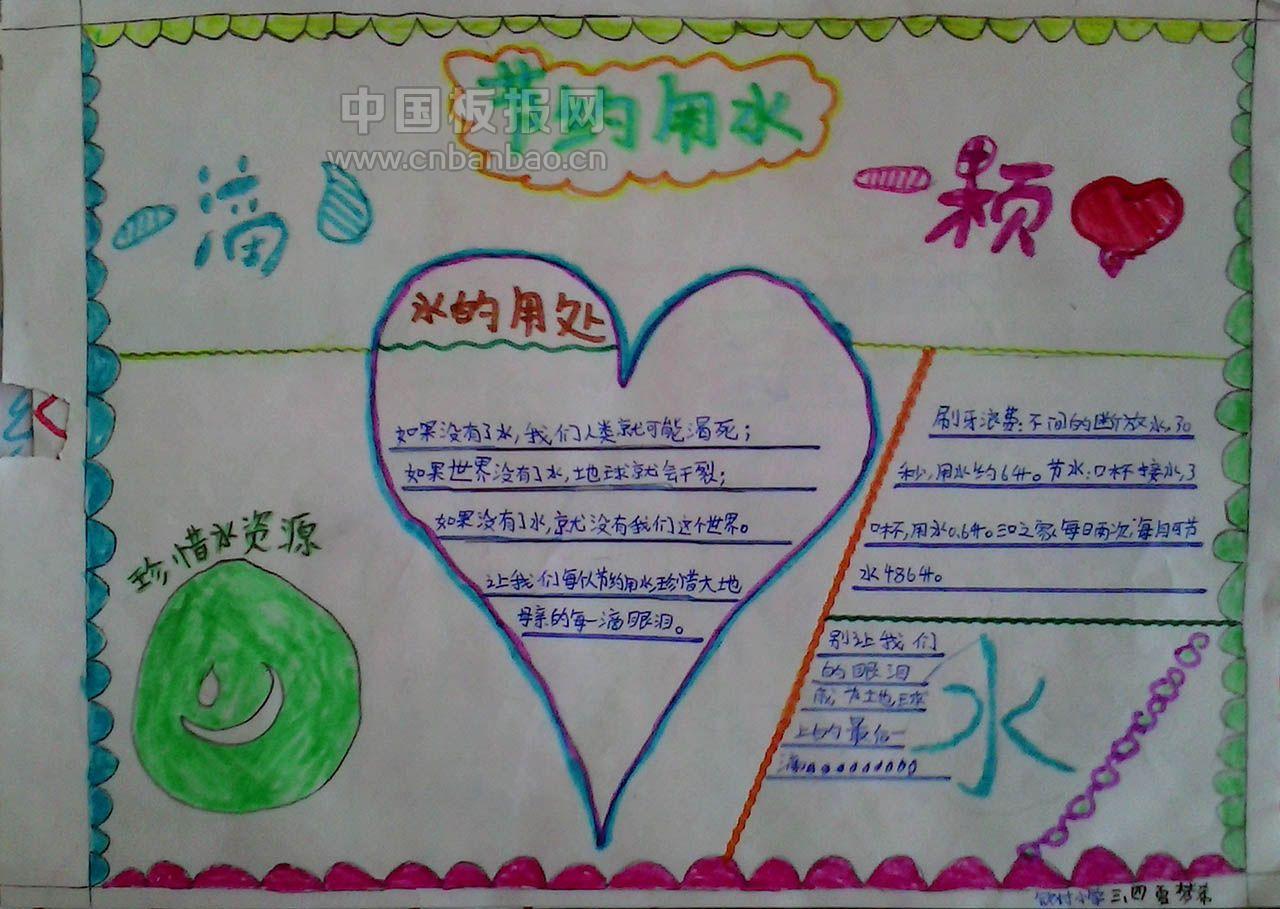 中国板报网
www.cnbanbao.cn
节约用水
一滴
一颗
水的用处
如果没有了水,我们人类就可能渴死;
如果世界没有了水,地球就会干裂;
如果没有了水,就没有我们这个世界。
让我们每从节约用水,珍惜大地
母亲的每一滴眼泪。
珍惜水资源
刷牙浪费:不间的断放水,30
秒,用水约6升。节水:口杯接水,3
口杯,用水0.6升。三口之家每日两次,每月可节
水486升。
别让我们
的眼泪
成为地球
上的最后一
滴
水
小学三、四